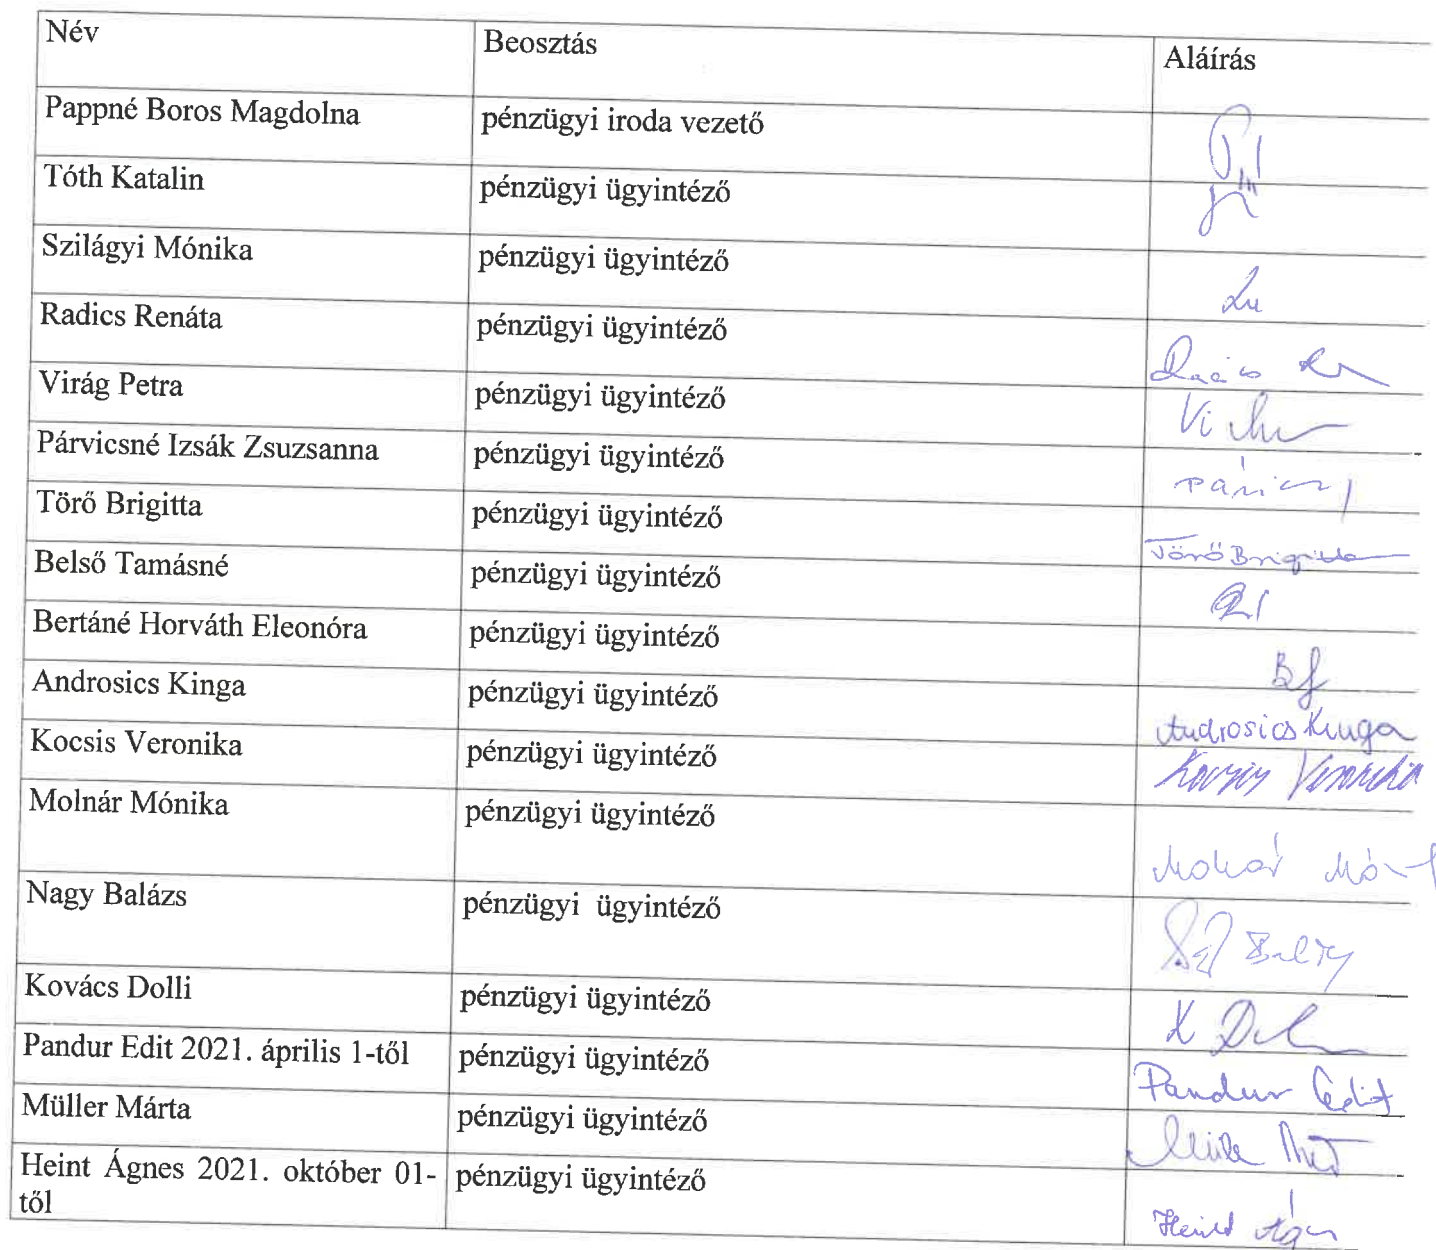 Név Beosztás Aláírás
Pappné Boros Magdolna pénzügyi iroda vezető
Tóth Katalin pénzügyi ügyintéző
Szilágyi Mónika pénzügyi ügyintéző
Radics Renáta pénzügyi ügyintéző
Virág Petra pénzügyi ügyintéző
Párvicsné Izsák Zsuzsanna pénzügyi ügyintéző
Törő Brigitta pénzügyi ügyintéző Törő Brigitta
Belső Tamásné pénzügyi ügyintéző
Bertáné Horváth Eleonóra pénzügyi ügyintéző
Androsics Kinga pénzügyi ügyintéző Androsics Kinga
Kocsis Veronika pénzügyi ügyintéző Kocsis Veronika
Molnár Mónika pénzügyi ügyintéző
Nagy Balázs pénzügyi ügyintéző
Kovács Dolli pénzügyi ügyintéző
Pandur Edit 2021. április 1-től pénzügyi ügyintéző Pandur Edit
Müller Márta pénzügyi ügyintéző
Heint Ágnes 2021. október 01- pénzügyi ügyintéző
től